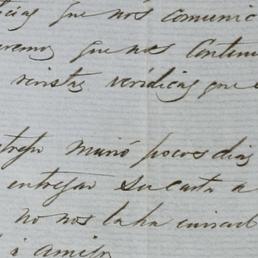 cias que nos comunic
eremos que nos contin
revistas verídicas que
murió pocos dias
entregar su carta a
no nos la ha enviad
i amigo